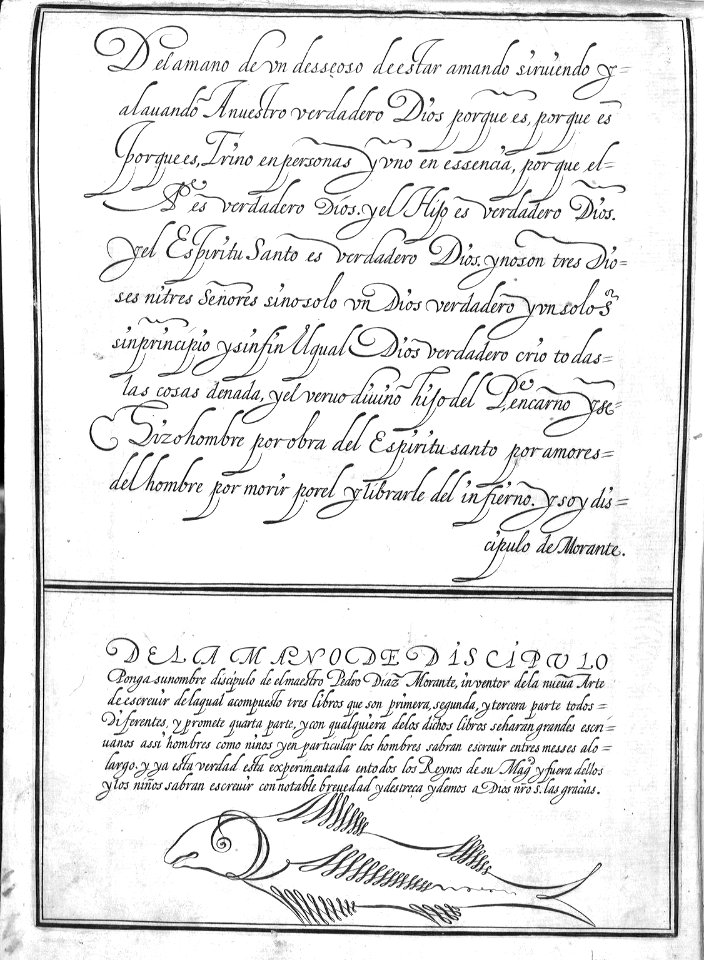 Del amano de vn desseoso de estar amando siruiendo y=
alauando A nuestro verdadero Dios porque es, porque es
porque es, Trino en personas y vno en essencia, porque el=
Pe es verdadero Dios. y el Hijo es verdadero Dios.
y el Espiritu Santo es verdadero Dios. y no son tres Dio=
ses ni tres Señores sino solo vn Dios verdadero y vn solo Sr
sin principio y sin fin Ygual Dios verdadero crio todas=
las cosas de nada, y el veruo diuino hijo del Pe, encarno y se=
Hizo hombre por obra del Espiritu santo por amores=
del hombre por morir por el y librarle del infierno. y soy dis=
cipulo de Morante.
DE LA MANO DE DISCIPULO
Ponga su nombre discipulo de el maestro Pedro Diaz Morante, inventor de la nueua Arte
de escreuir de la qual a compuesto tres libros que son primera, segunda, y tercera parte todos=
Diferentes, y promete quarta parte, y con qualquiera de los dichos libros se haran grandes escri=
uanos assi hombres como niños y en particular los hombres sabran escreuir en tres messes a lo=
largo. y ya esta verdad esta experimentada en todos los Reynos de su Magd. y fuera dellos
y los niños sabran escreuir con notable breuedad y destreça y demos a Dios nro s. las gracias.